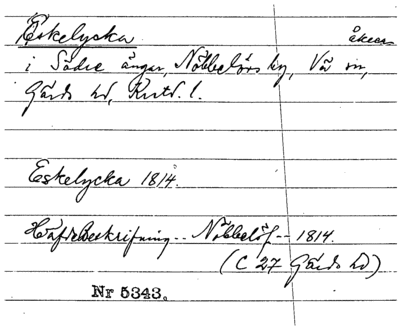 Eskelycka åker
i Södre ängar, Nöbbelövs by, Vä sn,
Gärds hd, Krstd. l.
Eskelycka 1814.
HäfdeBeskrifning -- Nöbbelöf -- 1814.
(C 27 Gärds hd)
Nr 5343.